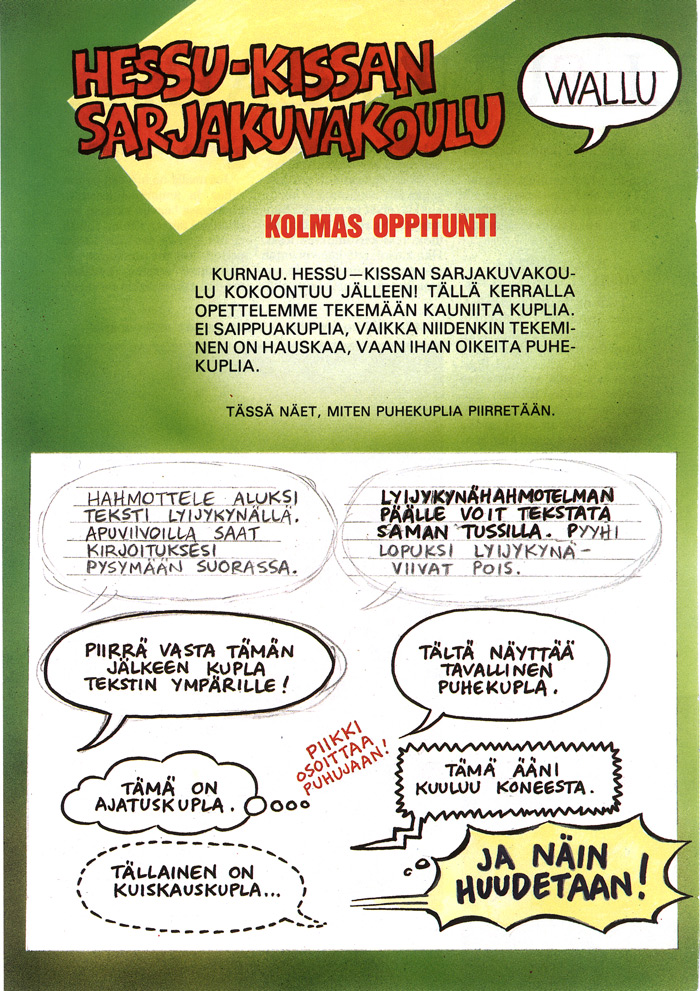 HESSU-KISSAN
SARJAKUVAKOULU
WALLU
KOLMAS OPPITUNTI
KURNAU. HESSU—KISSAN SARJAKUVAKOU-
LU KOKOONTUU JÄLLEEN! TÄLLÄ KERRALLA
OPETTELEMME TEKEMÄÄN KAUNIITA KUPLIA.
EI SAIPPUAKUPLIA, VAIKKA NIIDENKIN TEKEMI-
NEN ON HAUSKAA, VAAN IHAN OIKEITA PUHE-
KUPLIA.
TÄSSÄ NÄET, MITEN PUHEKUPLIA PIIRRETÄÄN.
HAHMOTTELE ALUKSI
TEKSTI LYIJYKYNÄLLÄ.
APUVIIVOILLA SAAT
KIRJOITUKSESI
PYSYMÄÄN SUORASSA.
LYIJYKYNÄHAHMOTELMAN
PÄÄLLE VOIT TEKSTATA
SAMAN TUSSILLA. PYYHI
LOPUKSI LYIJYKYNÄ-
VIIVAT POIS.
PIIRRÄ VASTA TÄMÄN
JÄLKEEN KUPLA
TEKSTIN YMPÄRILLE!
TÄLTÄ NÄYTTÄÄ
TAVALLINEN
PUHEKUPLA.
PIIKKI
OSOITTAA
PUHUJAAN!
TÄMÄ ON
AJATUSKUPLA.
TÄMÄ ÄÄNI
KUULUU KONEESTA.
TÄLLAINEN ON
KUISKAUSKUPLA...
JA NÄIN
HUUDETAAN!